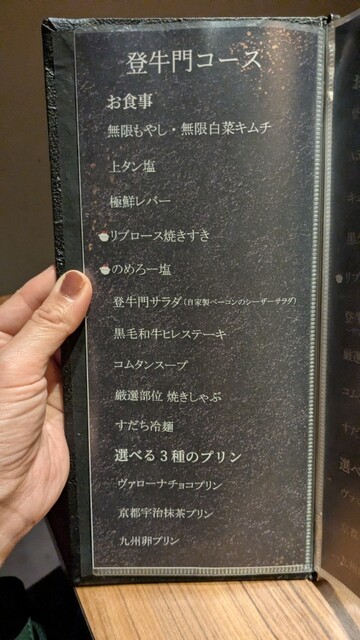 登牛門コース
お食事
無限もやし・無限白菜キムチ
上タン塩
極鮮レバー
リブロース焼きすき
のめろー塩
登牛門サラダ(自家製ベーコンのシーザーサラダ)
黒毛和牛ヒレステーキ
コムタンスープ
厳選部位 焼きしゃぶ
すだち冷麺
選べる3種のプリン
ヴァローナチョコプリン
京都宇治抹茶プリン
九州卵プリン